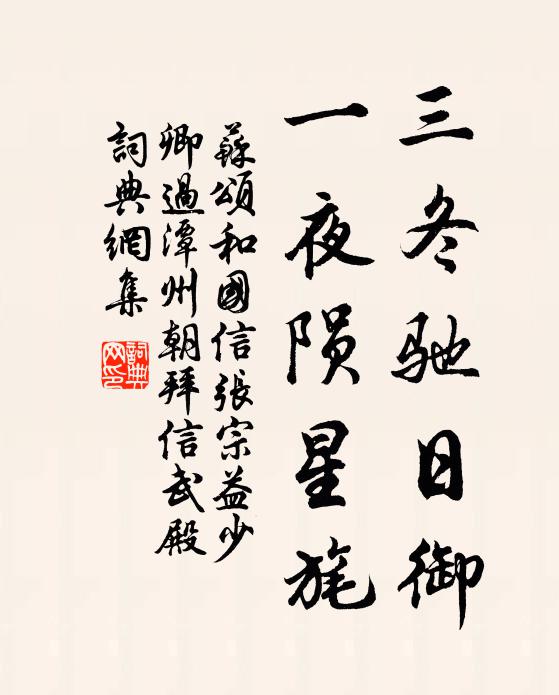 三冬驰日御
一夜陨星旄
蘇頌和國信張宗益少
卿過潭州朝拜信武殿
詞典網集
詞典
网印